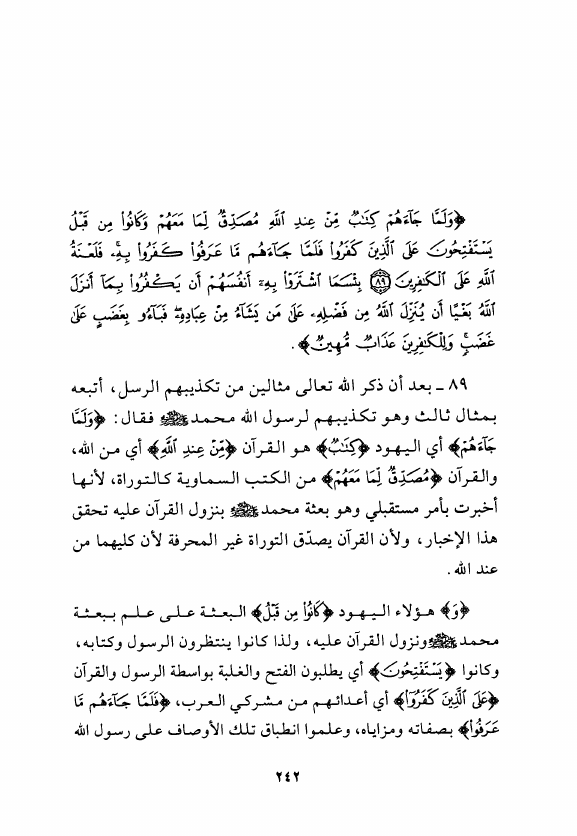 ﴿وَلَمَّا جَآءَهُمْ كِتَٰبٌ مِّنْ عِندِ ٱللَّهِ مُصَدِّقٌ لِّمَا مَعَهُمْ وَكَانُوا۟ مِن قَبْلُ
يَسْتَفْتِحُونَ عَلَى ٱلَّذِينَ كَفَرُوا۟ فَلَمَّا جَآءَهُم مَّا عَرَفُوا۟ كَفَرُوا۟ بِهِۦۚ فَلَعْنَةُ
ٱللَّهِ عَلَى ٱلْكَٰفِرِينَ ﴿٨٩﴾ بِئْسَمَا ٱشْتَرَوْا۟ بِهِۦٓ أَنفُسَهُمْ أَن يَكْفُرُوا۟ بِمَآ أَنزَلَ
ٱللَّهُ بَغْيًا أَن يُنَزِّلَ ٱللَّهُ مِن فَضْلِهِۦ عَلَىٰ مَن يَشَآءُ مِنْ عِبَادِهِۦۖ فَبَآءُو بِغَضَبٍ عَلَىٰ
غَضَبٍۚ وَلِلْكَٰفِرِينَ عَذَابٌ مُّهِينٌ﴾.
٨٩ ـ بعد أن ذكر الله تعالى مثالين من تكذيبهم الرسل، أتبعه
بمثال ثالث وهو تكذيبهم لرسول الله محمد ﷺ فقال: ﴿وَلَمَّا
جَآءَهُمْ﴾ أي اليهود ﴿كِتَٰبٌ﴾ هو القرآن ﴿مِّنْ عِندِ ٱللَّهِ﴾ أي من الله،
والقرآن ﴿مُصَدِّقٌ لِّمَا مَعَهُمْ﴾ من الكتب السماوية كالتوراة، لأنها
أخبرت بأمر مستقبلي وهو بعثة محمد ﷺ بنزول القرآن عليه تحقق
هذا الإخبار، ولأن القرآن يصدّق التوراة غير المحرفة لأن كليهما من
عند الله.
﴿وَ﴾ هؤلاء اليهود ﴿كَانُوا۟ مِن قَبْلُ﴾ البعثة على علم ببعثة
محمد ﷺ ونزول القرآن عليه، ولذا كانوا ينتظرون الرسول وكتابه،
وكانوا ﴿يَسْتَفْتِحُونَ﴾ أي يطلبون الفتح والغلبة بواسطة الرسول والقرآن
﴿عَلَى ٱلَّذِينَ كَفَرُوا۟﴾ أي أعدائهم من مشركي العرب، ﴿فَلَمَّا جَآءَهُم مَّا
عَرَفُوا۟﴾ بصفاته ومزاياه، وعلموا انطباق تلك الأوصاف على رسول الله
٢٤٢